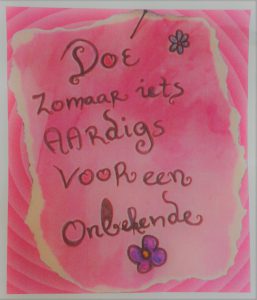 Doe
zomaar iets
AARdigs
VOOR een
Onbekende